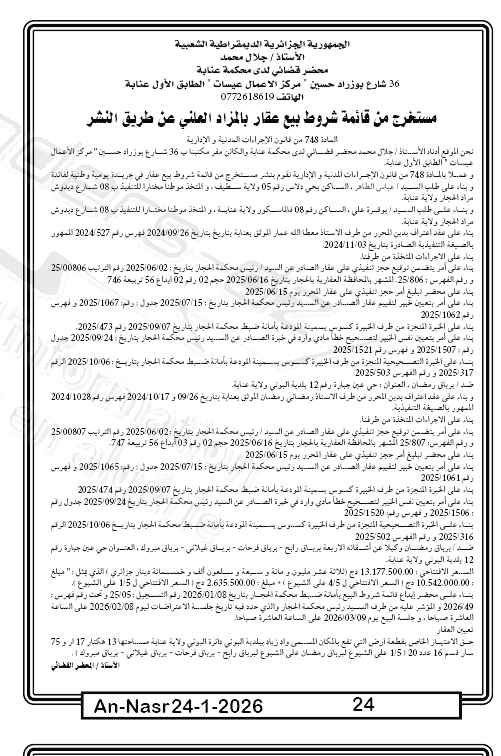 الجمهورية الجزائرية الديمقراطية الشعبية
الأستاذ / جلال محمد
محضر قضائي لدى محكمة عنابة
36 شارع بوزراد حسين " مركز الاعمال عيسات " الطابق الأول عنابة
الهاتف 0772618619
مستخرج من قائمة شروط بيع عقار بالمزاد العلني عن طريق النشر
المادة 748 من قانون الإجراءات المدنية و الإدارية
نحن الموقع أدناه الأستاذ / جلال محمد محضر قضائي لدى محكمة عنابة والكائن مقر مكتبنا ب 36 شارع بوزراد حسين " مركز الأعمال
عيسات " الطابق الأول عنابة.
و عملا بالمادة 748 من قانون الإجراءات المدنية و الإدارية نقوم بنشر مستخرج من قائمة شروط بيع عقار في جريدة يومية وطنية لفائدة
و بناء على طلب السيد / عباس الطاهر ، الساكن بحي دلاس رقم 05 ولاية سطيف ، و المتخذ موطنا مختارا للتنفيذ ب 08 شارع ديدوش
مراد الحجار ولاية عنابة.
و بناء على طلب السيد / بوقرة علي ، الساكن رقم 08 فالماسكور ولاية عنابة ، و المتخذ موطنا مختارا للتنفيذ ب 08 شارع ديدوش
مراد الحجار ولاية عنابة.
بناء على عقد اعتراف بدين المحرر من طرف الاستاذ معطا الله عمار الموثق بعنابة بتاريخ 2024/09/26 فهرس رقم 2024/527 الممهور
بالصيغة التنفيذية الصادرة بتاريخ 2024/11/03.
بناء على الاجراءات المتخذة من طرفنا.
بناء على أمر يتضمن توقيع حجز تنفيذي على عقار الصادر عن السيد / رئيس محكمة الحجار بتاريخ : 2025/06/02 رقم الترتيب 25/00806
و رقم الفهرس : 25/806. المشهر بالمحافظة العقارية بالحجار بتاريخ 2025/06/16 حجم 02 رقم 02 ايداع 56 تربيعة 746
بناء على محضر تبليغ أمر حجز تنفيذي على عقار المحرر يوم 2025/06/15
بناء على أمر بتعيين خبير لتقييم عقار الصادر عن السيد رئيس محكمة الحجار بتاريخ : 2025/07/15 جدول : رقم: 2025/1067 و فهرس
رقم 2025/1062
بناء على الخبرة المنجزة من طرف الخبيرة كسوس يسمينة المودعة بأمانة ضبط محكمة الحجار بتاريخ 2025/09/07 رقم 2025/473.
بناء على أمر بتعيين نفس الخبير لتصحيح خطأ مادي وارد في خبرة الصادر عن السيد رئيس محكمة الحجار بتاريخ : 2025/09/24 جدول
رقم : 2025/1507 و فهرس رقم 2025/1521
بناء على الخبرة التصحيحية المنجزة من طرف الخبيرة كسوس يسمينة المودعة بأمانة ضبط محكمة الحجار بتاريخ : 2025/10/06 الرقم
2025/317 و رقم الفهرس 2025/503
ضد / برياق رمضان ، العنوان : حي عين جبارة رقم 12 بلدية البوني ولاية عنابة.
و بناء على عقد اعتراف بدين المحرر من طرف الاستاذ رمضاني رمضان الموثق بعنابة بتاريخ 09/26 و 2024/10/17 فهرس رقم 2024/1028
الممهور بالصيغة التنفيذية.
بناء على الاجراءات المتخذة من طرفنا.
بناء على أمر يتضمن توقيع حجز تنفيذي على عقار الصادر عن السيد / رئيس محكمة الحجار بتاريخ :2025/06/02 رقم الترتيب 25/00807
و رقم الفهرس: 25/807 المشهر بالمحافظة العقارية بالحجار بتاريخ 2025/06/16 حجم 02 رقم 03 ايداع 56 تربيعة 747.
بناء على محضر تبليغ أمر حجز تنفيذي على عقار المحرر يوم 2025/06/15
بناء على أمر بتعيين خبير لتقييم عقار الصادر عن السيد رئيس محكمة الحجار بتاريخ : 2025/07/15 جدول : رقم: 2025/1065 و فهرس
رقم 2025/1061
بناء على الخبرة المنجزة من طرف الخبيرة كسوس يسمينة المودعة بأمانة ضبط محكمة الحجار بتاريخ 2025/09/07 رقم 2025/474
بناء على أمر بتعيين نفس الخبير لتصحيح خطأ مادي وارد في خبرة الصادر عن السيد رئيس محكمة الحجار بتاريخ 2025/09/24 جدول رقم
: 2025/1506 و فهرس رقم: 2025/1520
بناء على الخبرة التصحيحية المنجزة من طرف الخبيرة كسوس يسمينة المودعة بأمانة ضبط محكمة الحجار بتاريخ 2025/10/06 الرقم
2025/316 و رقم الفهرس 2025/502
ضد / برياق رمضان وكيلا عن أشقائه الاربعة برياق رابح - برياق فرحات - برياق غيلاني - برياق مبروك ، العنوان حي عين جبارة رقم
12 بلدية البوني ولاية عنابة.
السعر الافتتاحي : 13.177.500.00 دج (ثلاثة عشر مليون و مائة و سبعة و سبعون ألف و خمسمائة دينار جزائري ) الذي يمثل : " مبلغ
: 10.542.000.00 دج ( السعر الافتتاحي ل 4/5 على الشيوع ) + مبلغ : 2.635.500.00 دج ( السعر الافتتاحي ل 1/5 على الشيوع ).
بناء على محضر إيداع قائمة شروط البيع بأمانة ضبط محكمة الحجار بتاريخ 2026/01/08 رقم التسجيل : 25/05 و تحت رقم فهرس :
2026/49 و المؤشر عليه من طرف السيد رئيس محكمة الحجار والذي حدد فيه تاريخ جلسة الاعتراضات ليوم 2026/02/08 على الساعة
العاشرة صباحا ، و جلسة البيع يوم 2026/03/09 على الساعة العاشرة صباحا.
تعيين العقار
حق الامتياز الخاص بقطعة ارض التي تقع بالمكان المسمى واد زياد ببلدية البوني دائرة البوني ولاية عنابة مساحتها 13 هكتار 17 ار و 75
سار قسم 16 عدد 20 ( 1/5 على الشيوع لبرياق رمضان على الشيوع لبرياق رابح - برياق فرحات - برياق غيلاني - برياق مبروك ).
الأستاذ / المحضر القضائي
An-Nasr 24-1-2026
24